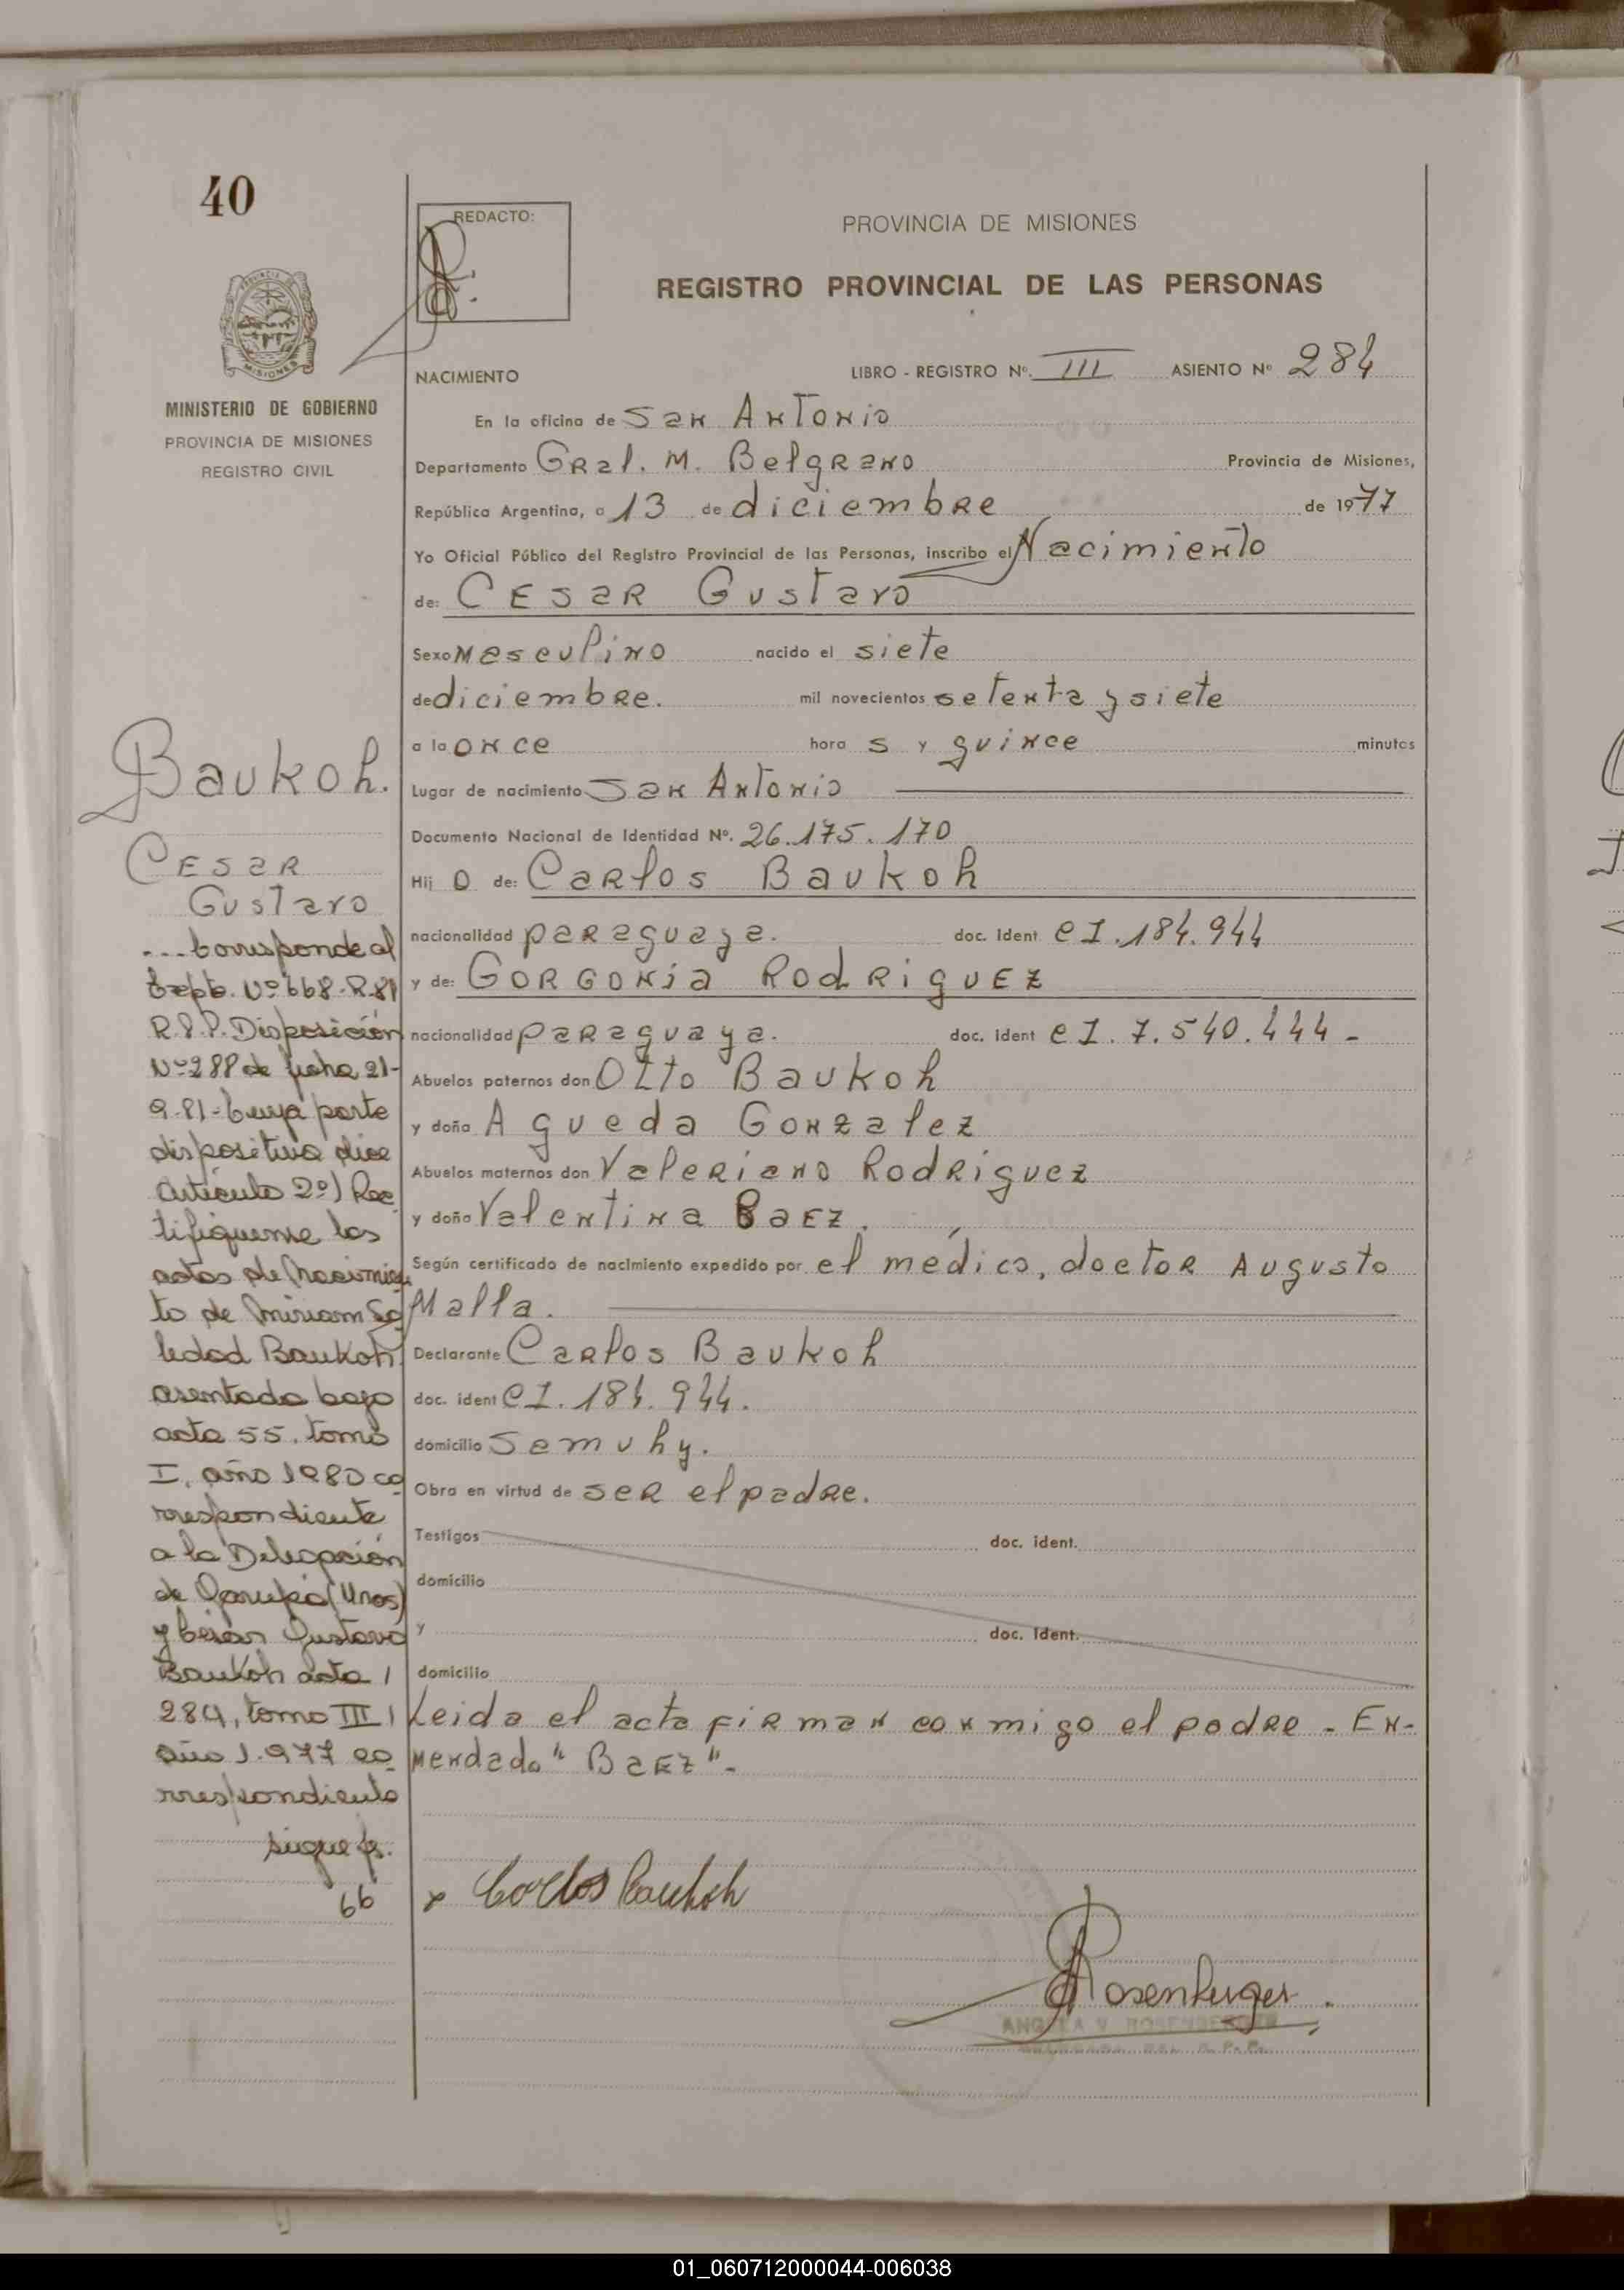 40
REDACTO:
PROVINCIA DE MISIONES
REGISTRO PROVINCIAL DE LAS PERSONAS
MISIONES
MINISTERIO DE GOBIERNO
PROVINCIA DE MISIONES
REGISTRO CIVIL
NACIMIENTO LIBRO - REGISTRO Nº. III ASIENTO Nº 284
En la oficina de San Antonio
Departamento Gral. M. Belgrano Provincia de Misiones,
República Argentina, a 13 de diciembre de 1977
Yo Oficial Público del Registro Provincial de las Personas, inscribo el Nacimiento
de: CESAR Gustavo
Sexo Masculino nacido el siete
de diciembre. mil novecientos setenta y siete
a la once hora s y quince minutos
Lugar de nacimiento San Antonio
Documento Nacional de Identidad Nº. 26.175.170
Hij o de: Carlos Baukoh
nacionalidad paraguaya. doc. ident CI.184.944
y de: GORGONia RodRiguEz
nacionalidad paraguaya. doc. ident CI. 7.540.444-
Abuelos paternos don Otto Baukoh
y doña Agueda Gonzalez
Abuelos maternos don Valeriano Rodriguez
y doña Valentina Baez.
Según certificado de nacimiento expedido por el medico, doctor Augusto
Malla.
Declarante Carlos Baukoh
doc. ident CI. 184.944.
domicilio Samuhy.
Obra en virtud de ser el padre.
Testigos doc. ident.
domicilio
y doc. ident.
domicilio
Leida el acta firman conmigo el padre - En-
mendado "Baez"-
Carlos Baukoh
Rosenberger
ANGELA V. ROSENBERGER
DELEGADA DEL R.P.P.
Baukoh.
CESAR
Gustavo
... Corresponde al
Expte. Nº 668-R-81
R.P.P. Disposición
Nº 288 de fecha 21-
9-81- Cuya parte
dispositiva dice
Articulo 2º) Rec
tifiquense las
actas de Nacimien
to de Miriam So
ledad Baukoh
asentada bajo
acta 55, tomo
I, año 1980 co
rrespondiente
a la Delegación
de Garupá (Mnes)
y Cesar Gustavo
Baukoh acta
284, tomo III
año 1.977 co
rrespondiente
sigue fs.
66
01_060712000044-006038